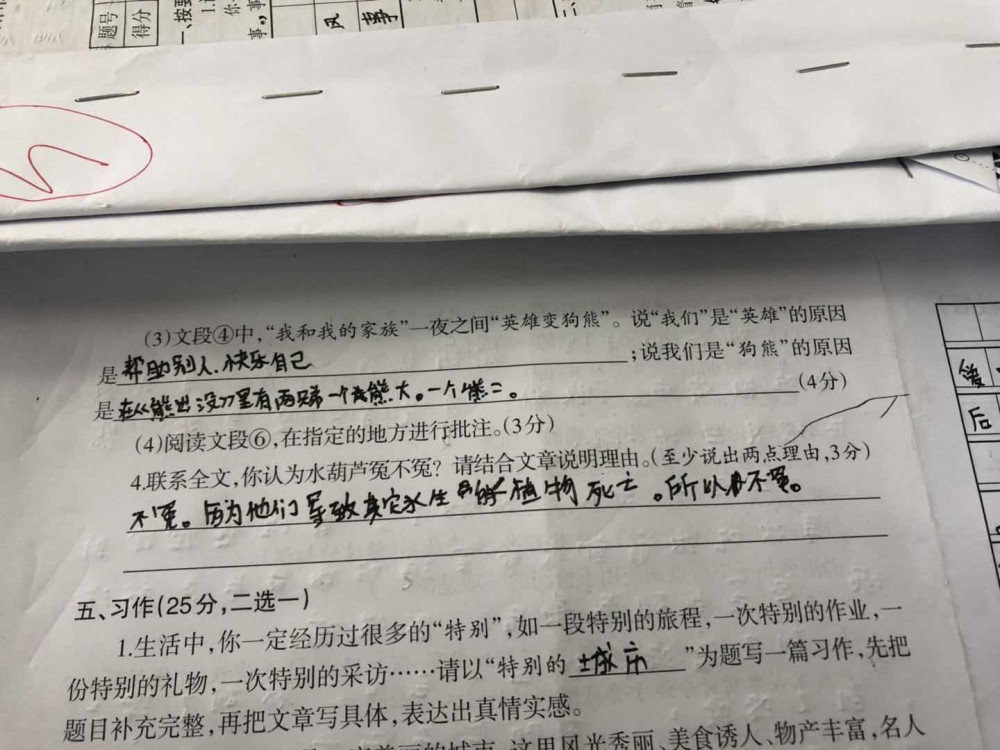 题号
得分
一、按要
风
事
事。
(3)文段④中,“我和我的家族”一夜之间“英雄变狗熊”。说“我们”是“英雄”的原因
是帮助别人.快乐自己;说我们是“狗熊”的原因
是在《熊出没》里有两兄弟一个熊大。一个熊二。(4分)
(4)阅读文段⑥,在指定的地方进行批注。(3分)
4.联系全文,你认为水葫芦冤不冤?请结合文章说明理由。(至少说出两点理由,3分)
不冤。因为他们导致其它水生植物死亡。所以不冤。
五、习作(25分,二选一)
1.生活中,你一定经历过很多的“特别”,如一段特别的旅程,一次特别的作业,一
份特别的礼物,一次特别的采访……请以“特别的城市”为题写一篇习作,先把
题目补充完整,再把文章写具体,表达出真情实感。
美丽的城市,这里风光秀丽、美食诱人、物产丰富,名人
后